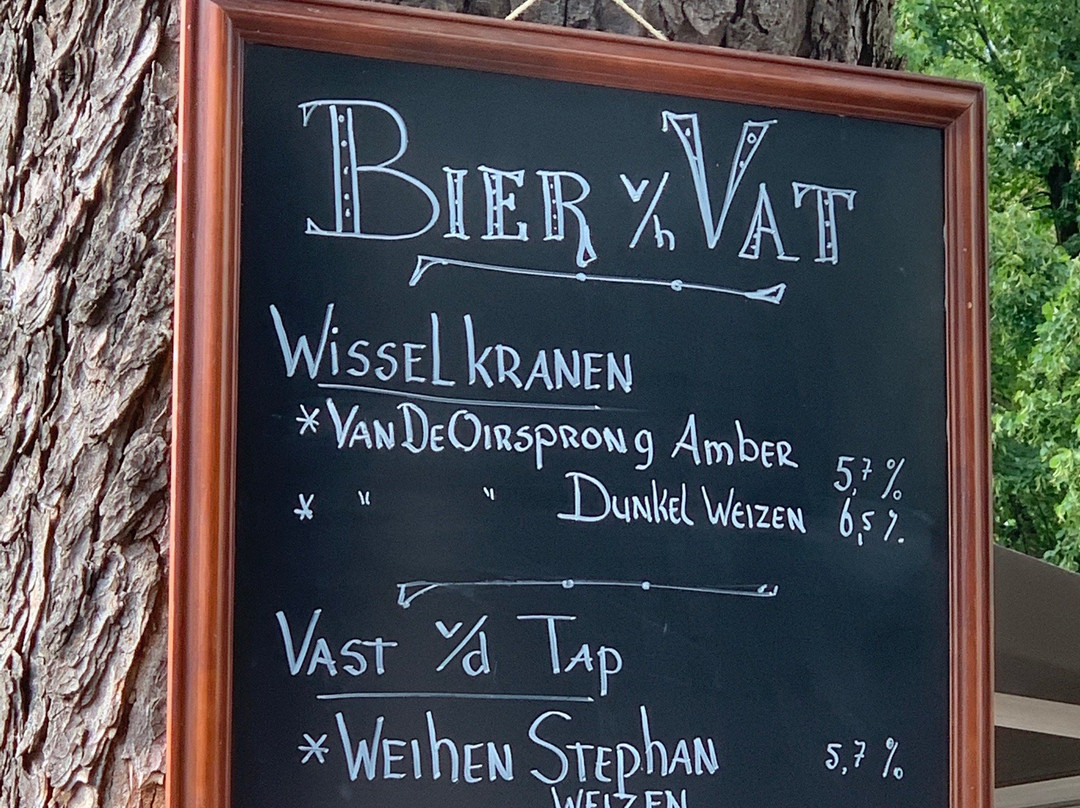 BIER v/h VAT
WISSELKRANEN
* VAN DE OIRSPRONG AMBER 5,7 %
* " " DUNKEL WEIZEN 6,5 %
VAST v/d TAP
* WEIHEN STEPHAN 5,7 %
WEIZEN